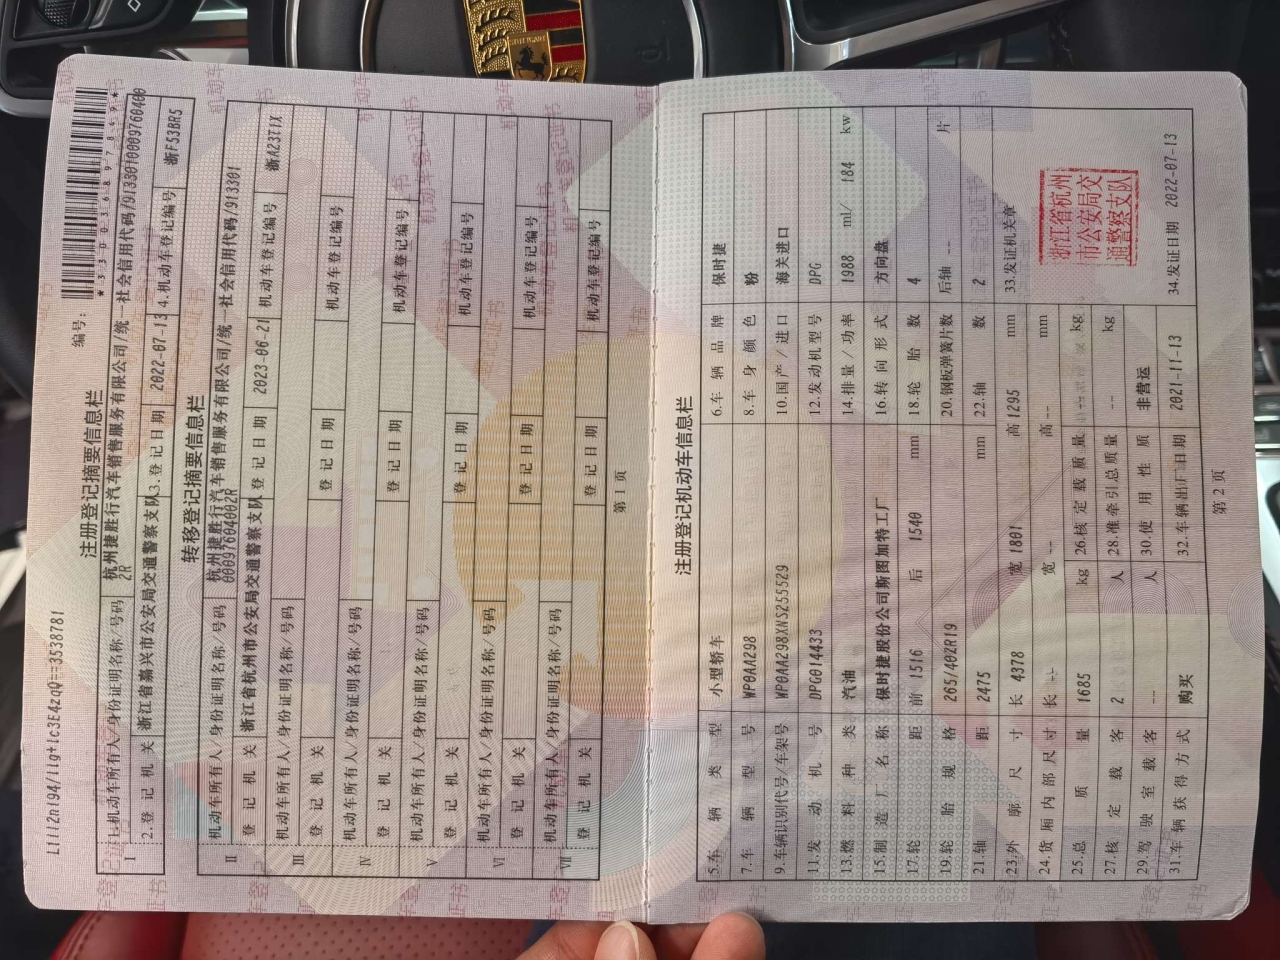 L1112n194/1Lg+1c3E4zq0==3538781
编号:
注册登记摘要信息栏
I
1.机动车所有人/身份证明名称/号码 杭州捷胜行汽车销售服务有限公司/统一社会信用代码/91330100097604002R
2.登记机关 浙江省嘉兴市公安局交通警察支队 3.登记日期 2022-07-13 4.机动车登记编号 浙F53BR5
转移登记摘要信息栏
II
机动车所有人/身份证明名称/号码 杭州捷胜行汽车销售服务有限公司/统一社会信用代码/91330100097604002R
登记机关 浙江省杭州市公安局交通警察支队 登记日期 2023-06-21 机动车登记编号 浙A23T1X
III
机动车所有人/身份证明名称/号码
登记机关 登记日期 机动车登记编号
IV
机动车所有人/身份证明名称/号码
登记机关 登记日期 机动车登记编号
V
机动车所有人/身份证明名称/号码
登记机关 登记日期 机动车登记编号
VI
机动车所有人/身份证明名称/号码
登记机关 登记日期 机动车登记编号
VII
机动车所有人/身份证明名称/号码
登记机关 登记日期 机动车登记编号
第1页
注册登记机动车信息栏
5.车辆类型 小型轿车 6.车辆品牌 保时捷
7.车辆型号 WP0AA298 8.车身颜色 粉
9.车辆识别代号/车架号 WP0AA298XNS255529 10.国产/进口 海关进口
11.发动机号 DPG014433 12.发动机型号 DPG
13.燃料种类 汽油 14.排量/功率 1988 ml/ 184 kw
15.制造厂名称 保时捷股份公司斯图加特工厂 16.转向形式 方向盘
17.轮距 前 1516 后 1540 mm 18.轮胎数 4
19.轮胎规格 265/402R19 20.钢板弹簧片数 后轴 -- 片
21.轴距 2475 mm 22.轴数 2
23.外廓尺寸 长 4378 宽 1801 高 1295 mm 33.发证机关章
24.货厢内部尺寸 长 -- 宽 -- 高 -- mm
25.总质量 1685 kg 26.核定载质量 -- kg
27.核定载客 2 人 28.准牵引总质量 -- kg
29.驾驶室载客 -- 人 30.使用性质 非营运
31.车辆获得方式 购买 32.车辆出厂日期 2021-11-13 34.发证日期 2022-07-13
浙江省杭州
市公安局交
通警察支队
第2页